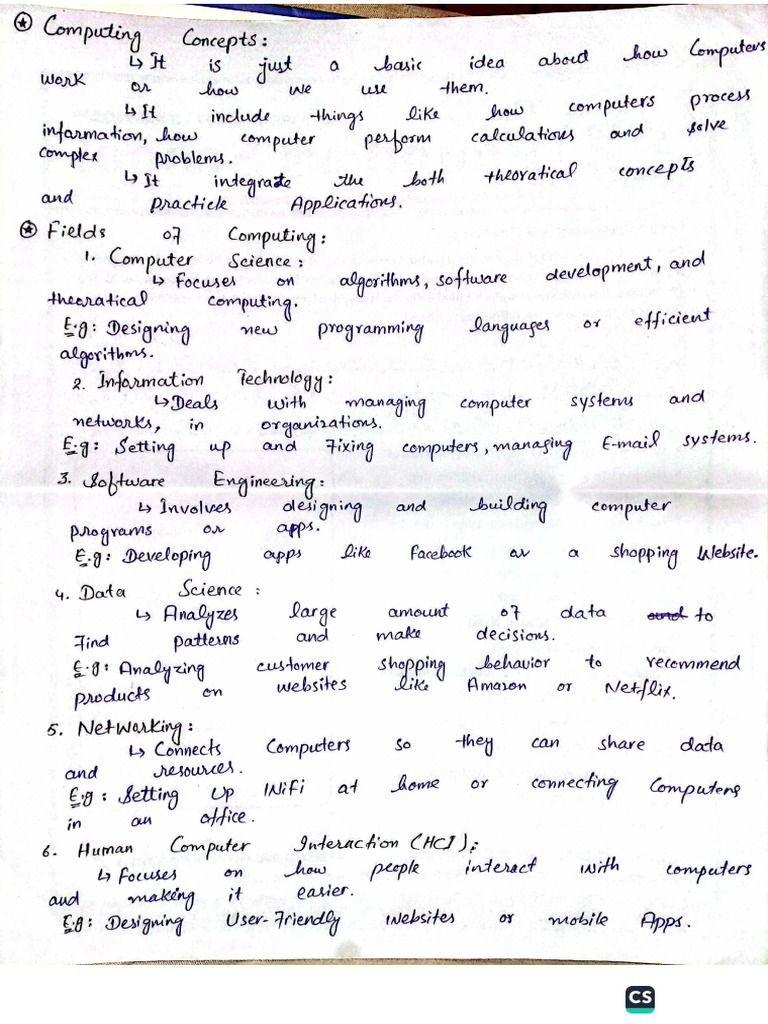 ⍟ Computing Concepts:
↳ It is just a basic idea about how Computers
work or how we use them.
↳ It include things like how computers process
information, how computer perform calculations and solve
complex problems.
↳ It integrate the both theoratical concepts
and Practicle Applications.
⍟ Fields of Computing:
1. Computer Science:
↳ Focuses on algorithms, software development, and
theoratical computing.
E.g: Designing new programming languages or efficient
algorithms.
2. Information Technology:
↳ Deals with managing computer systems and
networks, in organizations.
E.g: Setting up and Fixing computers, managing E-mail systems.
3. Software Engineering:
↳ Involves designing and building computer
programs or apps.
E.g: Developing apps like Facebook or a shopping Website.
4. Data Science:
↳ Analyzes large amount of data and to
Find patterns and make decisions.
E.g: Analyzing customer shopping behavior to recommend
products on websites like Amazon or Netflix.
5. Networking:
↳ Connects Computers so they can share data
and resources.
E.g: Setting Up WiFi at home or connecting Computers
in an office.
6. Human Computer Interaction (HCI):
↳ Focuses on how people interact with computers
and making it easier.
E.g: Designing User-Friendly Websites or mobile Apps.
CS